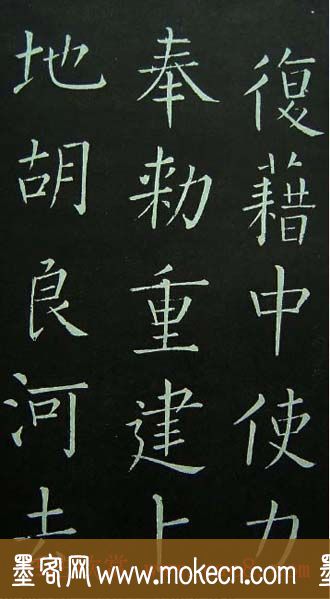 復藉中使
奉勅重建
地胡良河
墨客网 www.mokecn.com